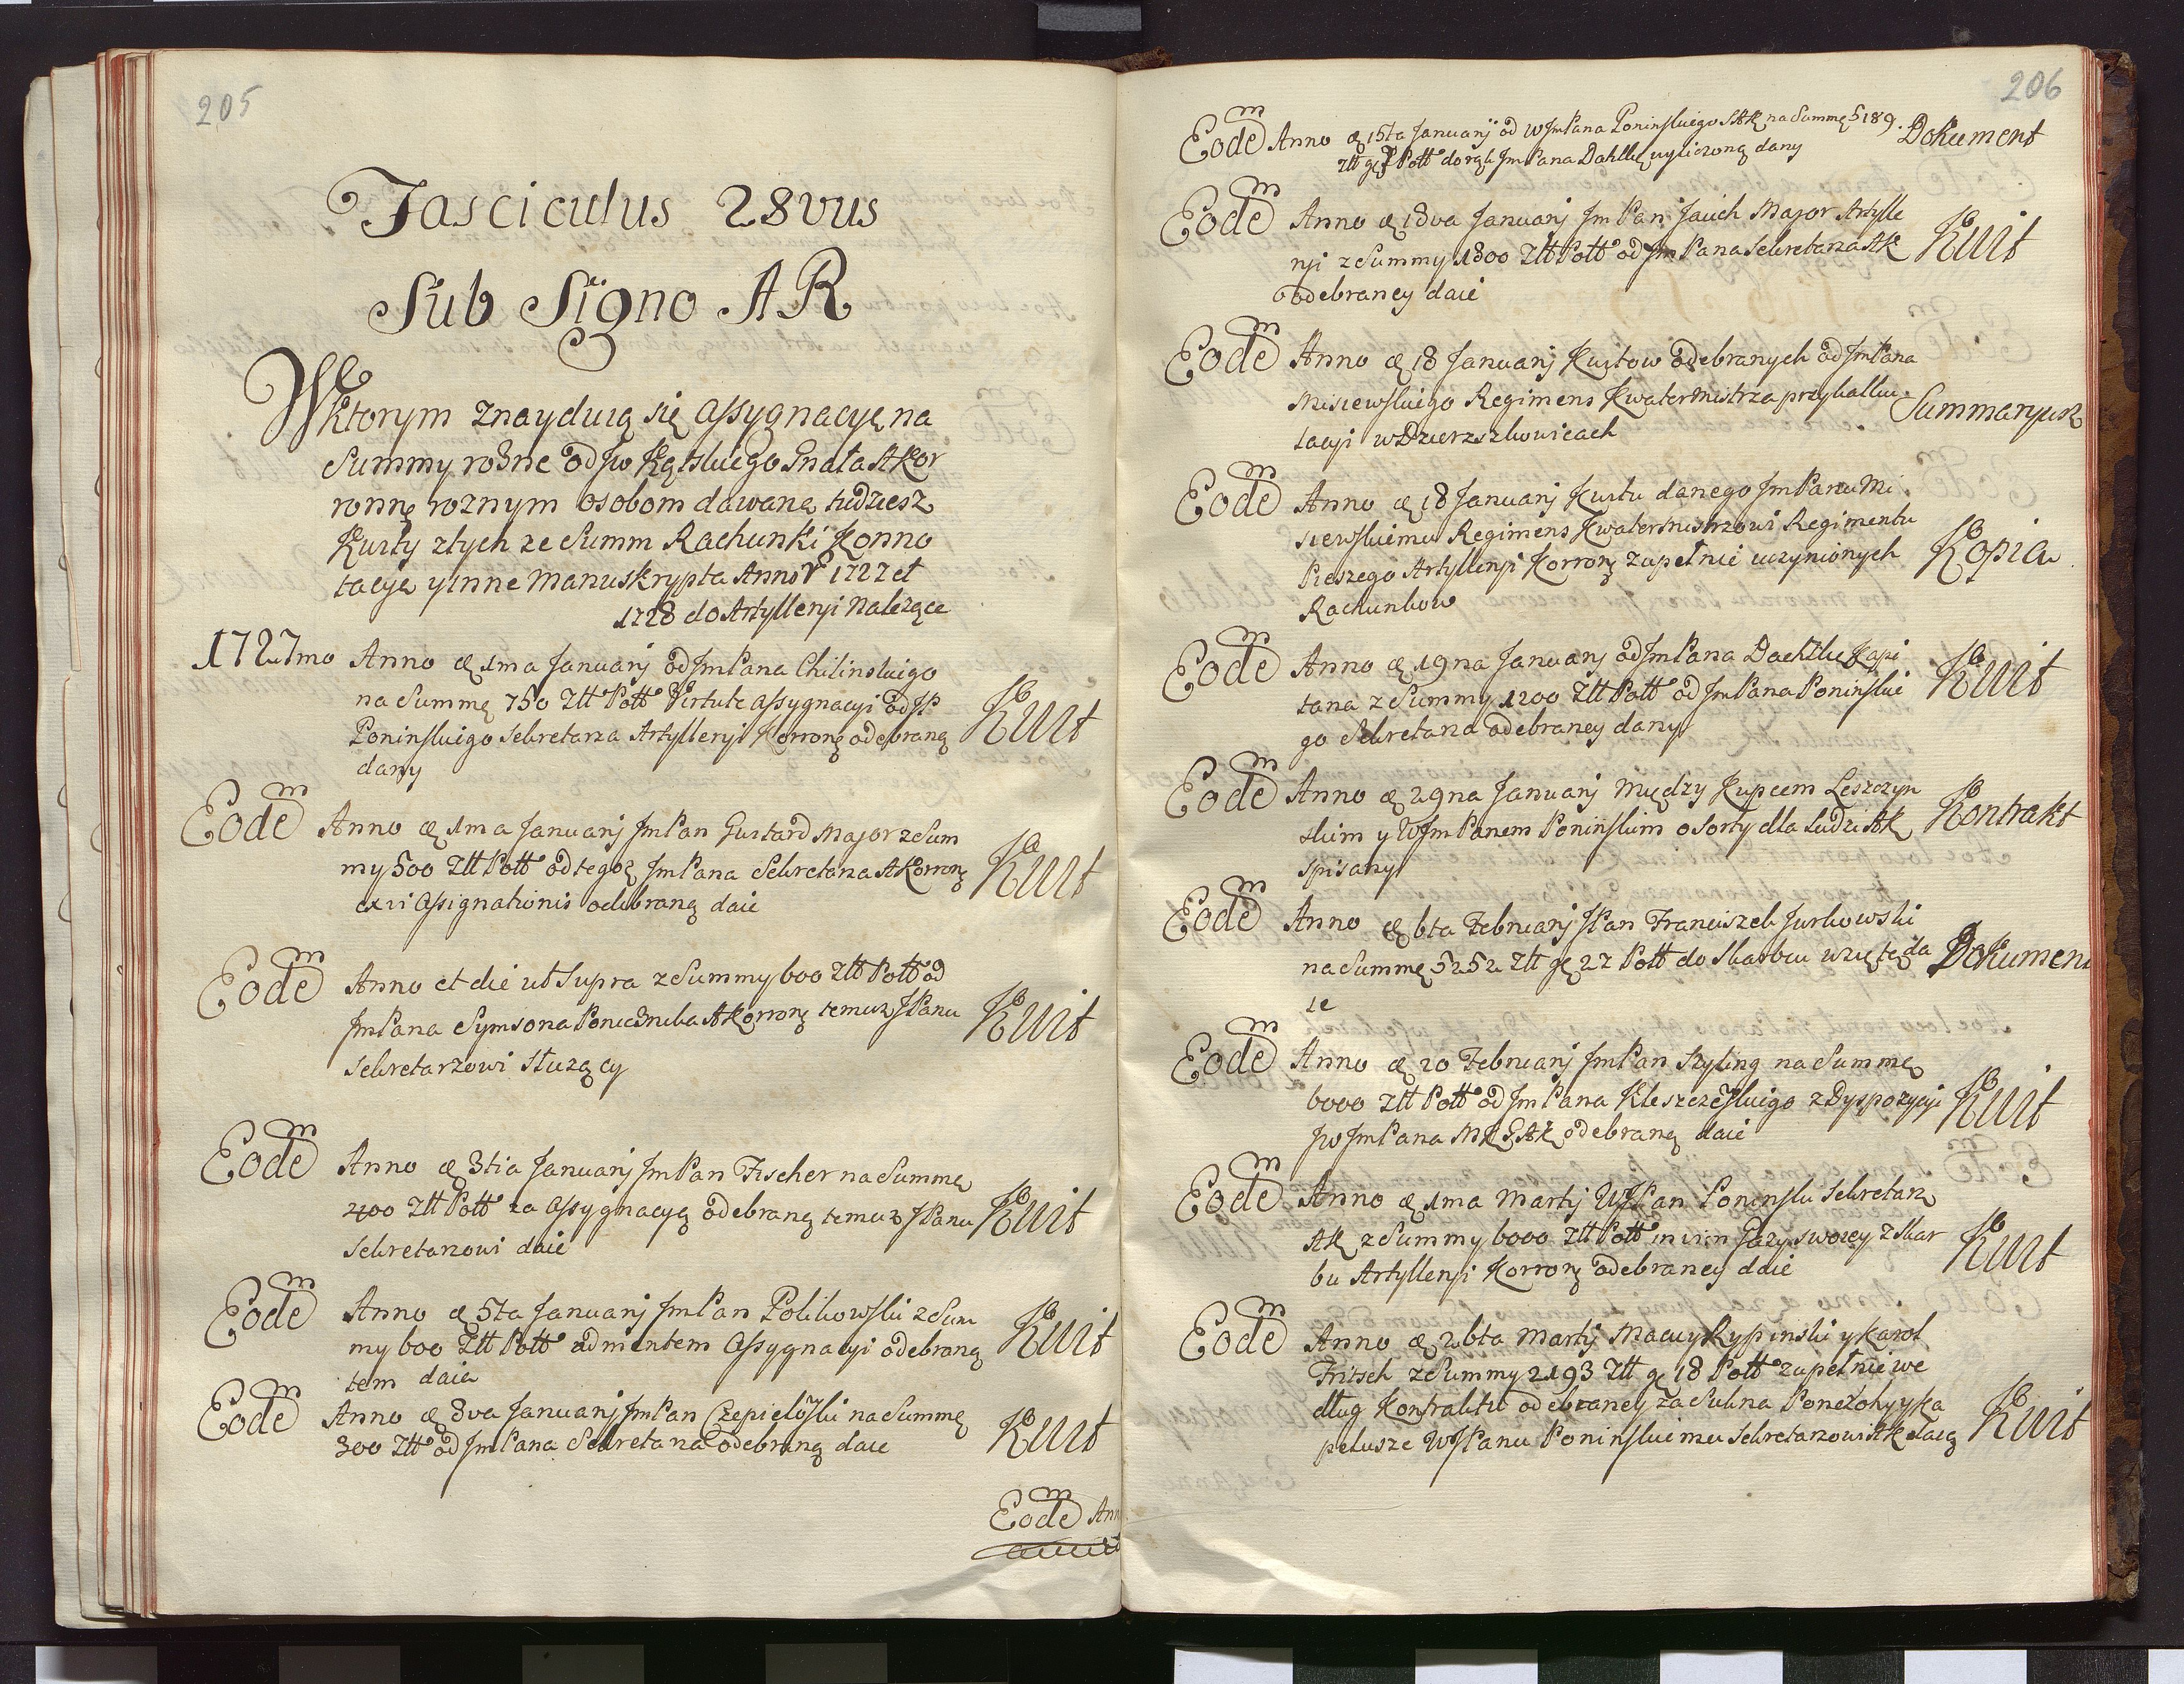 205
Fasciculus 28vus
Sub Signo AR
W ktorym znayduią się assygnacye na
Summy rożne od Jw Kątskiego Gnała A Kor
ronne roznym osobom dawane tudziesz
Kwity z tych ze Summ Rachunki Konno
tacye y inne Manuskrypta Anno 1727 et
1728 do Artylleryi Nalezące
1727mo Anno æ 1ma Januarj od Jm Pana Chilinskiego
na Summę 750 Ztt Poll Virtute assygnacyi od JP
Poninskiego Sekretarza Artylleryi Korronę odebraną
dany
Kwit
Eodem Anno æ 1ma Januarj Jm Pan Gustard Major z Sum
my 500 Ztt Poll od tegoż Jm Pana Sekretarza A Korronę
ex vi assignationis odebraną daie
Kwit
Eodem Anno et die ut Supra z Summy 600 Ztt Poll od
Jm Pana Symsona A Korronę temuz JPanu
Sekretarzowi służący
Kwit
Eodem Anno æ 3tia Januarj Jm Pan Fischer na Summę
Ztt Poll za assygnacyą odebraną temuz JPanu
Sekretarzowi daie
Kwit
Eodem Anno æ 5ta Januarj Jm Pan Polikowski z Sum
my 600 Ztt Poll ad mentem assygnacyi odebraną
tem daie
Kwit
Eodem Anno æ 8va Januarj Jm Pan Czepielowski na Summę
300 Ztt od Jm Pana Sekretarza odebraną daie
Kwit
Eodem Ann
206
Eodem Anno æ 15ta Januarij od W Jm Pana Poninskiego SAK na Summę 5189
Ztt Poll do rąk Jm Pana Dahlke wyliczoną dany
Dokument
Eodem Anno æ 18va Januarj Jm Pan Jauch Major Artylle
ryi z Summy 1800 Ztt Poll od Jm Pana Sekretarza AK
odebraney daie
Kwit
Eodem Anno æ 18 Januarj Kwitow odebranych od Jm Pana
Misiewskiego Regimens Kwatermistrza przy kalku
lacyi w Dzierzszkowicach
Summaryusz
Eodem Anno æ 18 Januarj Kwitu danego Jm Panu Mi
siewskiemu Regimens Kwatermistrzowi Regimentu
Pieszego Artylleryi Korronę zupełnie uczynionych
Rachunkow
Kopia
Eodem Anno æ 19na Januarj od Jm Pana Dachtke Kapi
tana z Summy 1200 Ztt Poll od Jm Pana Poninskie
go Sekretarza odebraney dany
Kwit
Eodem Anno æ 29na Januarj Między Kupcem Leszczyn
skim y WJm Panem Poninskim o Sorty dla Ludzi AK
spisany
Kontrakt
Eodem Anno æ 6ta Februarj JPan Franciszek Jurkowski
na Summę 5252 Ztt gę 27 Poll do Skarbu wziętę da
ie
Dokument
Eodem Anno æ 20 Februarj Jm Pan Szyling na Summę
6000 Ztt Poll od Jm Pana Kleszczewskiego z Dyspozycyi
Jw Jm Pana odebraną daie
Kwit
Eodem Anno æ 1ma Martj WJPan Poninski Sekretarz
AK z Summy 6000 Ztt Poll in vim Gazy swoiey z Skar
bu Artylleryi Korronę odebraney daie
Kwit
Eodem Anno æ 26ta Martij Maciey Rypinski y Karol
Fritsch z Summy 2193 Ztt gę 18 Poll zupełnie we
dług Kontraktu odebraney za Sukna Ponczochy y Ka
pelusze WJPanu Poninskiemu Sekretarzowi AK daią
Kwit